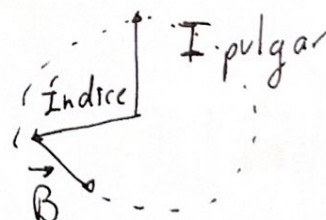 I. pulgar
Índice
B